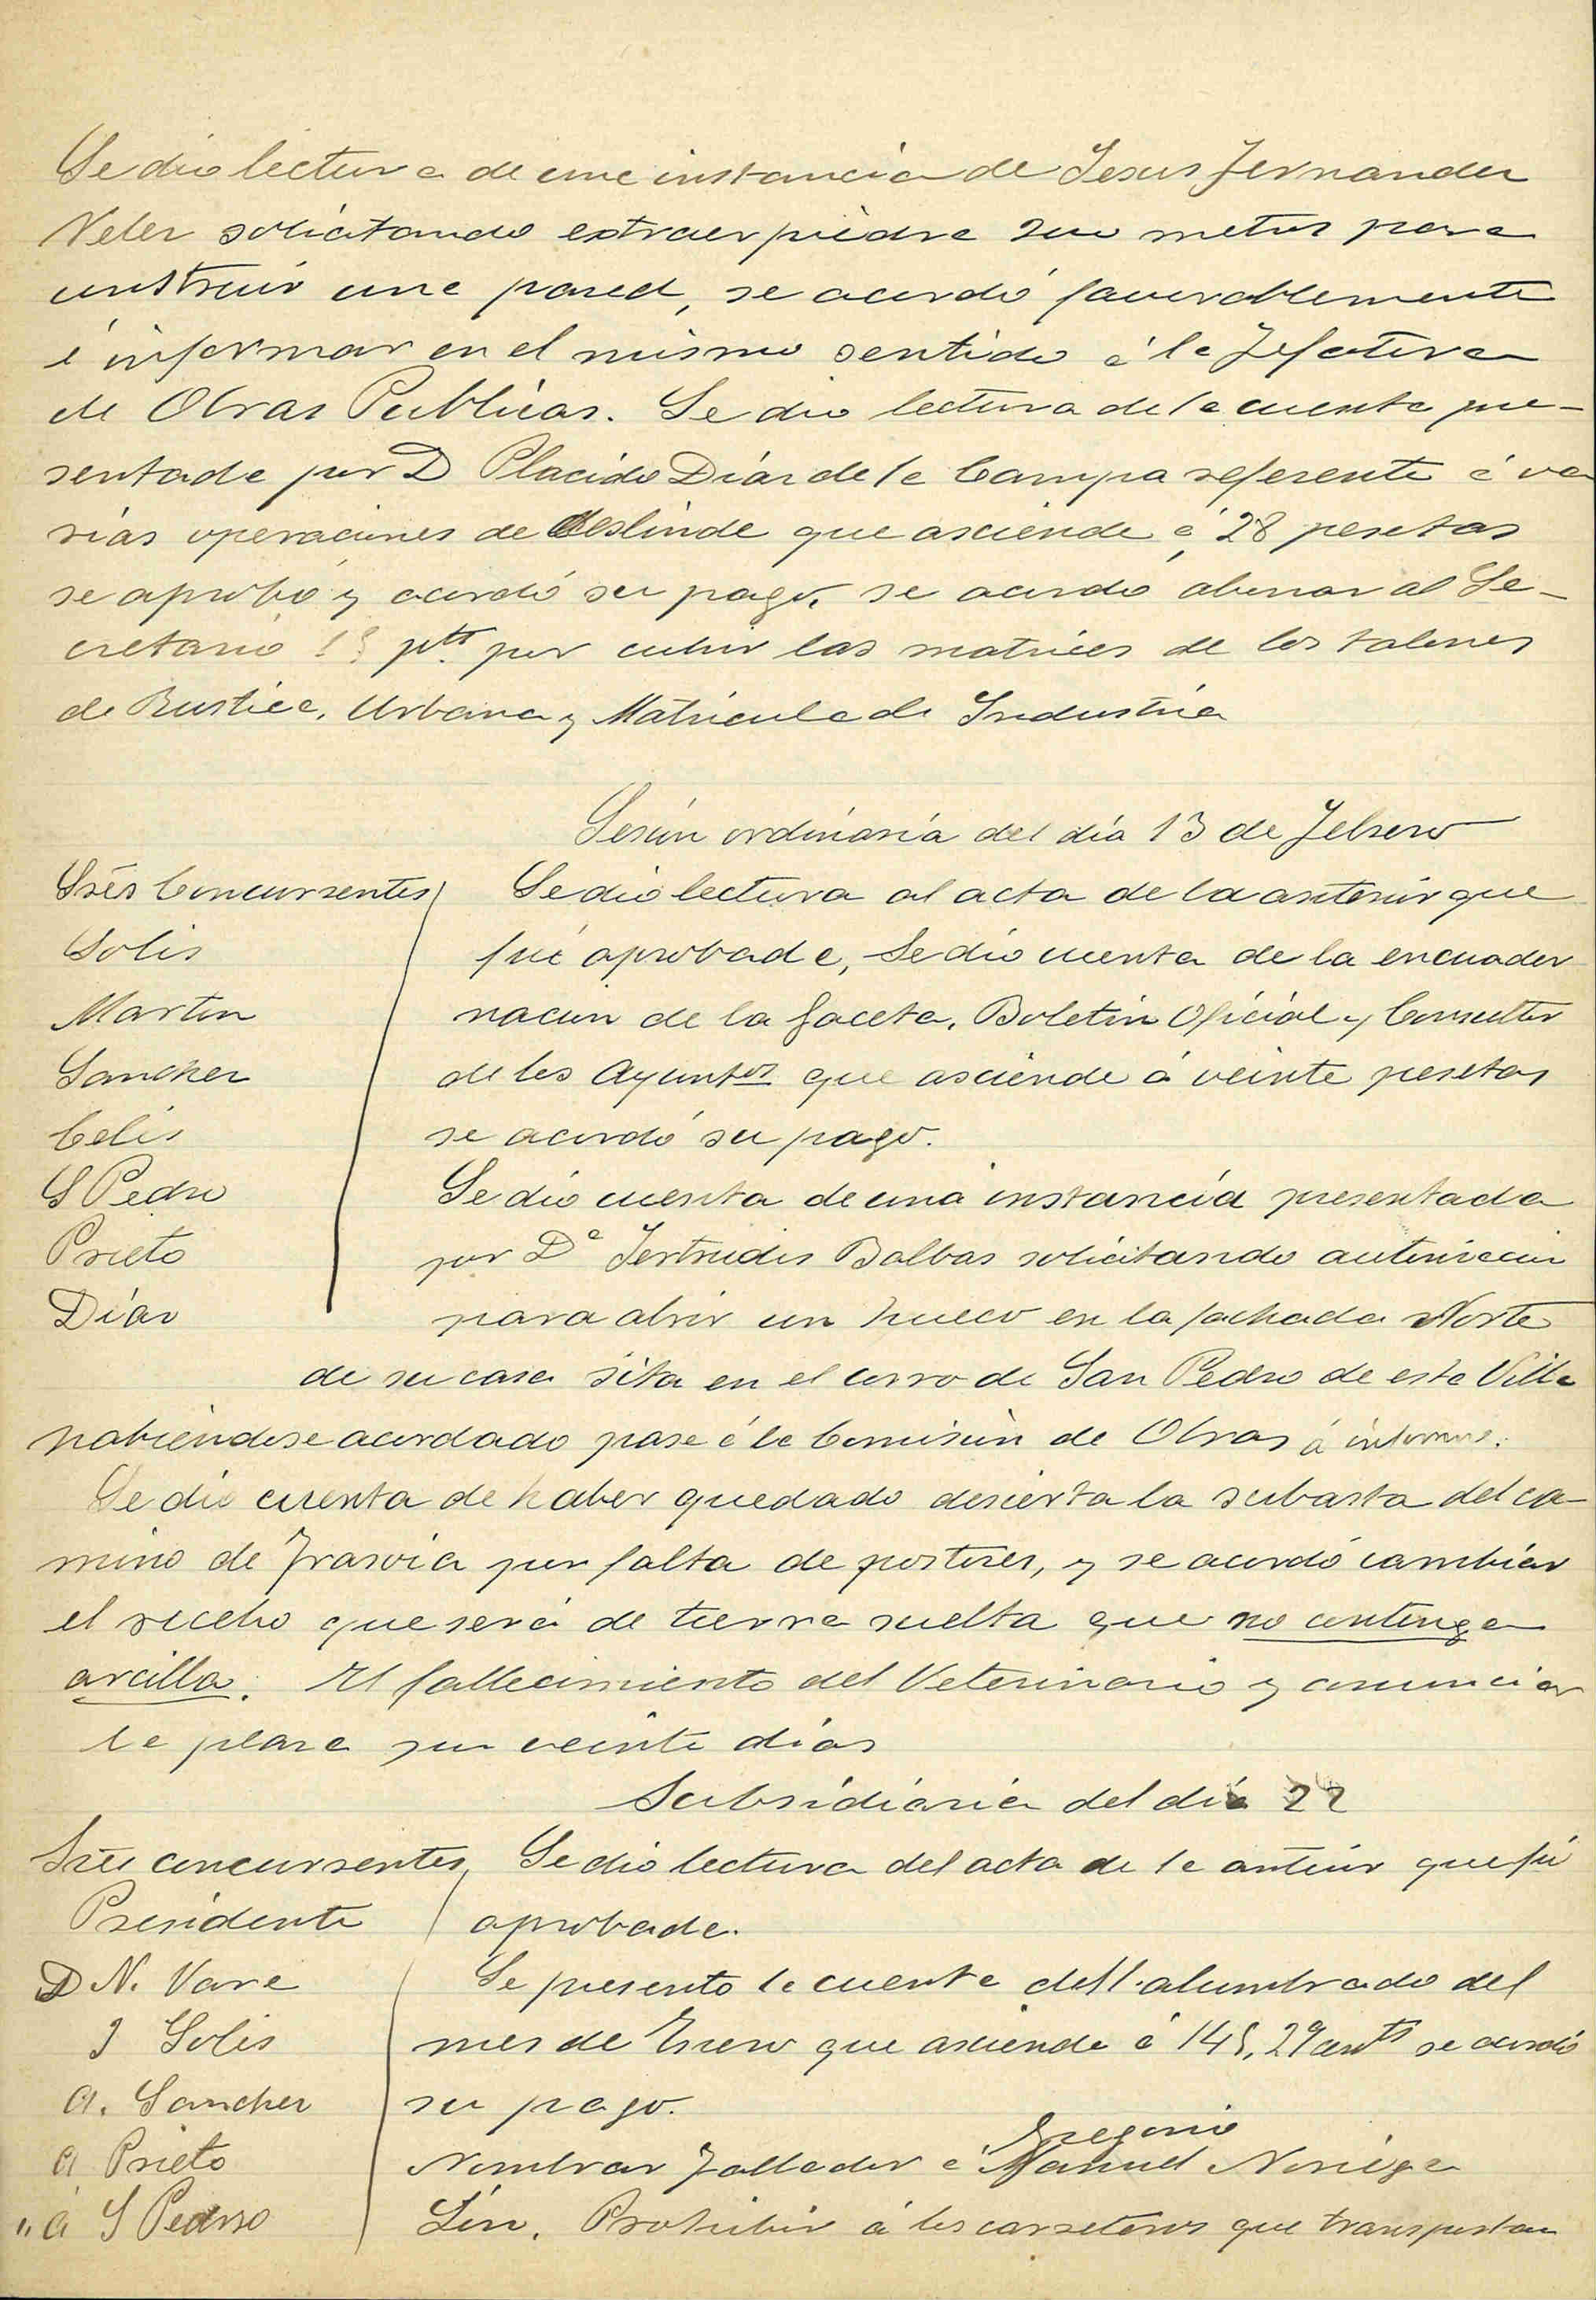 Se dio lectura de una instancia de Jesus Fernandez
Velez solicitando extraer piedra metros para
construir una pared, se acordó favorablemente
é informar en el mismo sentido á la Jefatura
de Obras Publicas. Se dio lectura de la cuenta pre-
sentada por D Placido Díaz de la Campa referente á va
rias operaciones de deslinde que asciende á 28 pesetas
se aprobó y acordó su pago, se acordó abonar al Se-
cretario pts. por cubrir las matrices de los talones
de Rustica, Urbana y Matricula de Industria
Sesión ordinaria del día 13 de Febrero
Sres Concurrentes Se dio lectura al acta de la anterior que
Solis fué aprobada, Se dio cuenta de la encuader
Martin nación de la Gaceta, Boletín Oficial y Consultor
Sanchez de los Ayuntos que asciende á veinte pesetas
Celis se acordó su pago.
S Pedro Se dio cuenta de una instancia presentada
Prieto por Da Gertrudis Balbas solicitando autorización
Díaz para abrir un hueco en la fachada Norte
de su casa sita en el corro de San Pedro de esta Villa
habiéndose acordado pase á la Comisión de Obras á informe.
Se dio cuenta de haber quedado desierta la subasta del ca-
mino de Trasvia por falta de postores, y se acordó cambiar
el recebo que será de tierra suelta que no contenga
arcilla. El fallecimiento del Veterinario y anunciar
la plaza por veinte días
Subsidiaria del día 22
Sres concurrentes Se dio lectura del acta de la anterior que fué
Presidente aprobada.
D N. Vara Se presento la cuenta del alumbrado del
J Solis mes de Enero que asciende á 145,29 cents se acordó
A. Sanchez su pago.
Gregorio
A Prieto Nombrar Tallador á Manuel Noriega
" A S Pedro Lín. Prohibir á los carreteros que transportan